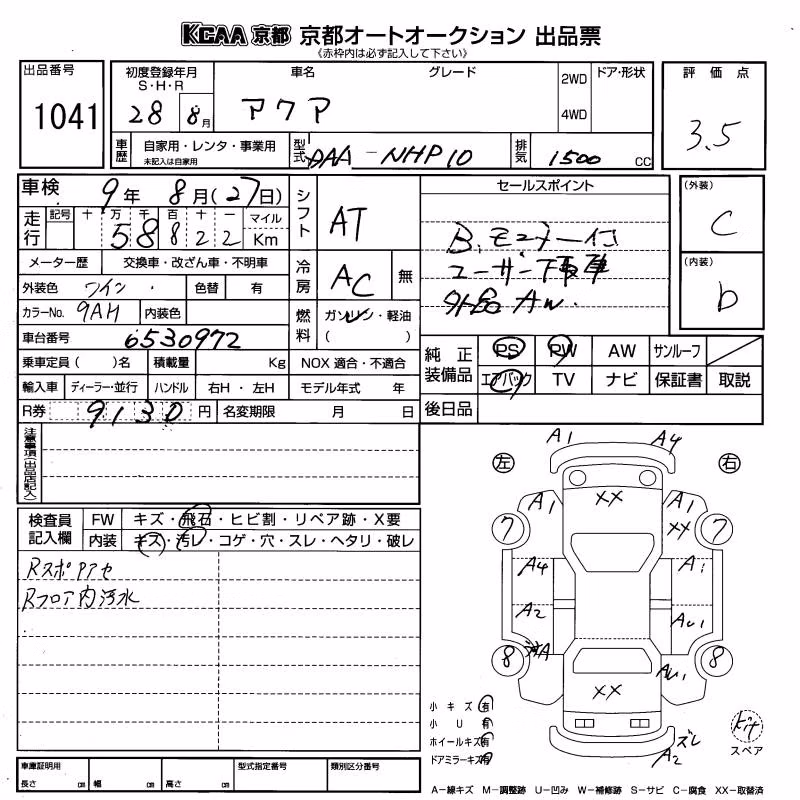 KCAA 京都 京都オートオークション 出品票
《赤枠内は必ず記入して下さい》
出品番号 1041
初度登録年月 S・H・R 28 8月
車名 アクア
グレード
2WD
4WD
ドア・形状
評価点 3.5
車歴 自家用・レンタ・事業用 未記入は自家用
型式 DAA-NHP10
排気 1500 CC
車検 9年 8月(27日)
シフト AT
セールスポイント
B.モニター付
ユーザー下取車
社外品 AW.
(外装) C
(内装) D
走行 記号 十 万 千 百 十 一 マイル Km
58822
メーター歴 交換車・改ざん車・不明車
冷房 AC 無
外装色 ワイン 色替 有
カラーNo. 9AH 内装色
燃料 ガソリン・軽油 ( )
車台番号 6530972
純正装備品 PS PW AW サンルーフ
エアバック TV ナビ 保証書 取説
乗車定員( )名 積載量 Kg NOX 適合・不適合
輸入車 ディーラー・並行 ハンドル 右H・左H モデル年式 年
後日品
R券 9130円 名変期限 月 日
注意事項(出品店記入)
左 右
検査員記入欄 FW キズ・飛石・ヒビ割・リペア跡・X要
内装 キズ・汚レ・コゲ・穴・スレ・ヘタリ・破レ
RスポPアセ
Rフロア内汚水
A1 A4
XX
A1 A1
7 XX 7
A4 A1
A2 AU1
8 8
AU1
XX
ズレ
A2
小キズ 有
小U 有
ホイールキズ 有
ドアミラーキズ 有
キット
スペア
車庫証明用 長さ cm 幅 cm 高さ cm 型式指定番号 類別区分番号
A-線キズ M-調整跡 U-凹み W-補修跡 S-サビ C-腐食 XX-取替済